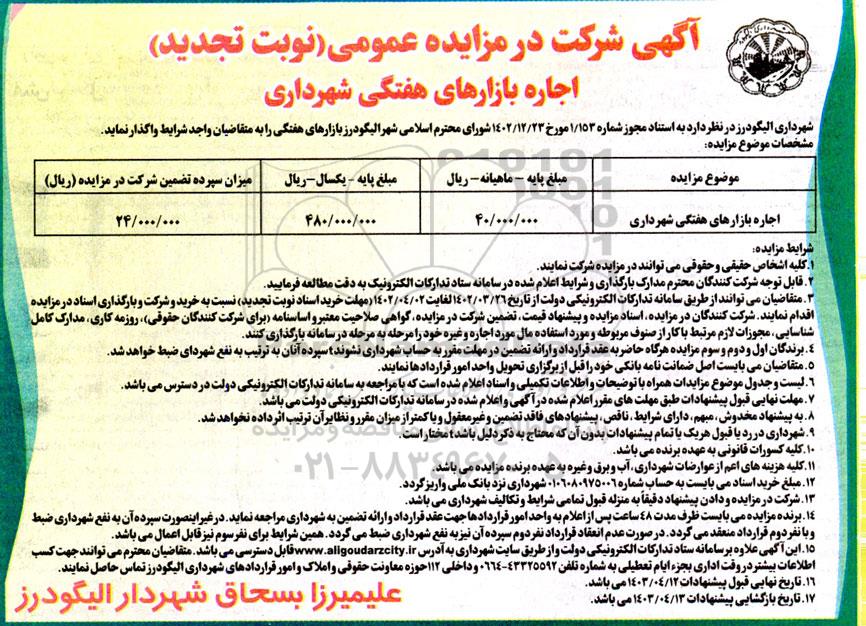 آگهی شرکت در مزایده عمومی(نوبت تجدید)
اجاره بازارهای هفتگی شهرداری
شهرداری الیگودرز در نظر دارد به استناد مجوز شماره ۱/۱۵۳ مورخ ۱۴۰۲/۱۲/۲۳ شورای محترم اسلامی شهر الیگودرز بازارهای هفتگی را به متقاضیان واجد شرایط واگذار نماید.
مشخصات موضوع مزایده:
موضوع مزایده مبلغ پایه – ماهیانه – ریال مبلغ پایه - یکسال – ریال میزان سپرده تضمین شرکت در مزایده (ریال)
اجاره بازارهای هفتگی شهرداری ۴۰/۰۰۰/۰۰۰ ۴۸۰/۰۰۰/۰۰۰ ۲۴/۰۰۰/۰۰۰
شرایط مزایده:
۱.کلیه اشخاص حقیقی و حقوقی می توانند در مزایده شرکت نمایند.
۲. قابل توجه شرکت کنندگان محترم مدارک بارگذاری و شرایط اعلام شده در سامانه ستاد تدارکات الکترونیک به دقت مطالعه فرمایید.
۳. متقاضیان می توانند از طریق سامانه تدارکات الکترونیکی دولت از تاریخ ۱۴۰۲/۰۳/۲۶ لغایت ۱۴۰۲/۰۴/۰۲ (مهلت خرید اسناد نوبت تجدید) نسبت به خرید و شرکت و بارگذاری اسناد در مزایده
اقدام نمایند. شرکت کنندگان در مزایده، اسناد مزایده و پیشنهاد قیمت، تضمین شرکت در مزایده، گواهی صلاحیت معتبر و اساسنامه (برای شرکت کنندگان حقوقی)، روزمه کاری، مدارک کامل
شناسایی، مجوزات لازم مرتبط با کار از صنوف مربوطه و مورد استفاده مال مورد اجاره و غیره خود را مرحله به مرحله در سامانه بارگذاری کنند.
۴. برندگان اول و دوم و سوم مزایده هرگاه حاضر به عقد قرارداد و ارائه تضمین در مهلت مقرر به حساب شهرداری نشوند؛ سپرده آنان به ترتیب به نفع شهردای ضبط خواهد شد.
۵. متقاضیان می بایست اصل ضمانت نامه بانکی خود را قبل از برگزاری تحویل واحد امور قراردادها نمایند.
۶. لیست و جدول موضوع مزایدات همراه با توضیحات و اطلاعات تکمیلی و اسناد اعلام شده است که با مراجعه به سامانه تدارکات الکترونیکی دولت در دسترس می باشد.
۷. مهلت نهایی قبول پیشنهادات طبق مهلت های مقرر اعلام شده در آگهی و اعلام شده در سامانه تدارکات الکترونیکی دولت می باشد.
۸. به پیشنهاد مخدوش، مبهم، دارای شرایط، ناقص، پیشنهادهای فاقد تضمین و غیر معقول و یا کمتر از میزان مقرر و نظایر آن ترتیب اثر داده نخواهد شد.
۹. شهرداری در رد یا قبول هر یک یا تمام پیشنهادات بدون آن که محتاج به ذکر دلیل باشد؛ مختار است.
۱۰.کلیه کسورات قانونی به عهده برنده می باشد.
۱۱.کلیه هزینه های اعم از عوارضات شهرداری، آب و برق و غیره به عهده برنده مزایده می باشد.
۱۲. مبلغ خرید اسناد می بایست به حساب شماره ۰۱۰۶۰۸۰۹۷۵۰۰۶ شهرداری نزد بانک ملی واریز گردد.
۱۳. شرکت در مزایده و دادن پیشنهاد دقیقا به منزله قبول تمامی شرایط و تکالیف شهرداری می باشد.
۱۴. برنده مزایده می بایست ظرف مدت ۴۸ ساعت پس از اعلام به واحد امور قراردادها جهت عقد قرارداد و ارائه تضمین به شهرداری مراجعه نماید. در غیر اینصورت سپرده آن به نفع شهرداری ضبط
و با نفر دوم قرارداد منعقد می گردد. در صورت عدم انعقاد قرارداد نفر دوم سپرده آن نیز به نفع شهرداری ضبط می گردد. همین شرایط برای نفر سوم نیز قابل اعمال می باشد.
۱۵. این آگهی علاوه بر سامانه ستاد تدارکات الکترونیکی دولت و از طریق سایت شهرداری به آدرس www.aligoudarzcity.ir قابل دسترسی می باشد. متقاضیان محترم می توانند جهت کسب
اطلاعات بیشتر در وقت اداری بجزء ایام تعطیلی به شماره تلفن ۴۳۳۲۵۵۹۲-۰۶۶۴ و داخلی ۱۱۲ حوزه معاونت حقوقی و املاک و امور قراردادهای شهرداری الیگودرز تماس حاصل نمایند.
۱۶. تاریخ نهایی قبول پیشنهادات ۱۴۰۳/۰۴/۱۲ می باشد.
۱۷. تاریخ بازگشایی پیشنهادات ۱۴۰۳/۰۴/۱۳ می باشد.
علیمیرزا بسحاق شهردار الیگودرز